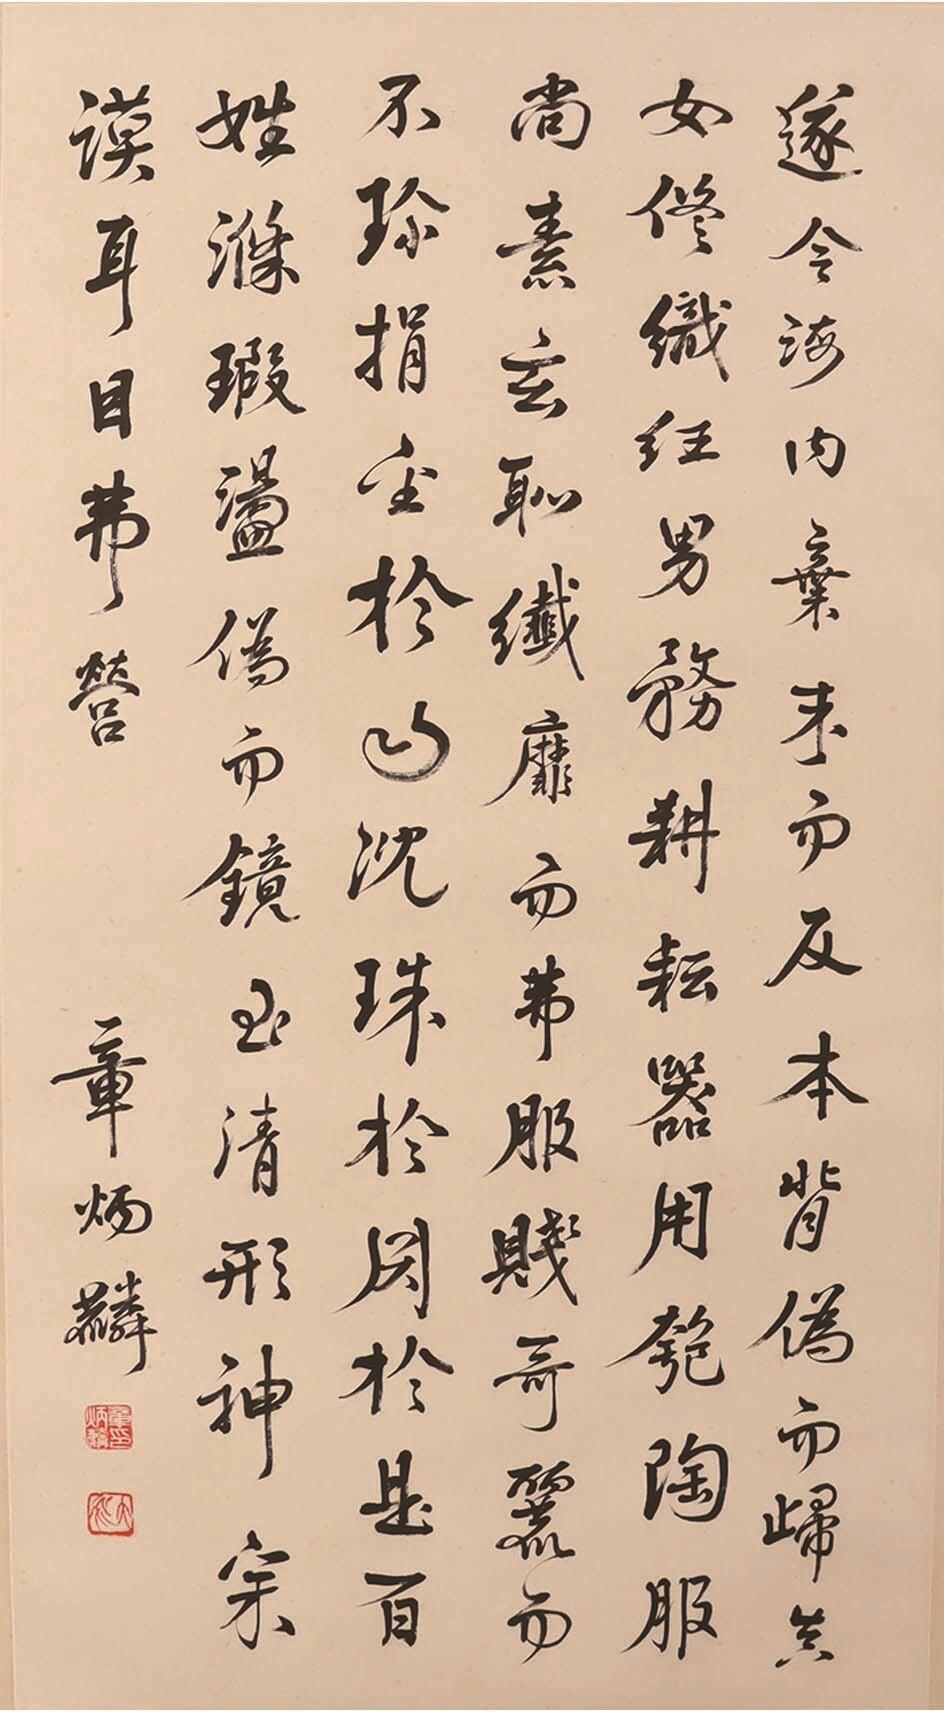 遂令海内棄末而反本背偽而歸真
女修織紝男務耕耘器用匏陶服
尚素玄恥纖靡而弗服賤奇麗而
不珍捐金於山沈珠於淵於是百
姓滌瑕盪偽而鏡至清形神宗
謨耳目弗營 章炳麟
章炳麟印
太炎